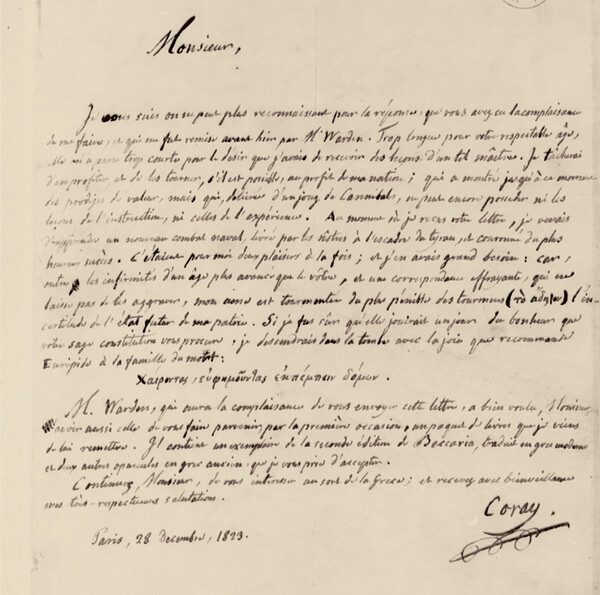 Monsieur,
Je vous suis on ne peut plus reconnaissant pour la réponse, que vous avez eu la complaisance
de me faire, et qui me fut remise avant hier par Mr Warden. Trop longue pour votre respectable âge,
elle m'a paru trop courte pour le désir que j'avais de recevoir des leçons d'un tel maître. Je tâcherai
d'en profiter et de les tourner, s'il est possible, au profit de ma nation; qui a montré jusqu'à ce moment
des prodiges de valeur, mais qui, délivrée d'un joug de Cannibals, ne peut encore posséder ni les
leçons de l'instruction, ni celles de l'expérience. Au moment où je reçus votre lettre, je venais
d'apprendre un nouveau combat naval, livré par les nôtres à l'escadre du tyran, et couronné du plus
heureux succès. C'étaient pour moi deux plaisirs à la fois; et j'en avais grand besoin: car,
outre les infirmités d'un âge plus avancé que le vôtre, et une correspondance effrayante, qui ne
laisse pas de les aggraver, mon âme est tourmentée du plus pénible des tourmens (τὸ ἄδηλον) l'in-
certitude de l'état futur de ma patrie. Si je fus sûr qu'elle jouirait un jour du bonheur que
votre sage constitution vous procure, je descendrais dans la tombe avec la joie que recommande
Euripide à la famille du mort:
Χαίροντας, εὐφημοῦντας ἐκπέμπειν δόμων.
M. Warden, qui aura la complaisance de vous envoyer cette lettre, a bien voulu, Monsieur,
avoir aussi celle de vous faire parvenir par la première occasion, un paquet de livres que je viens
de lui remettre. Il contient un exemplaire de la seconde édition de Beccaria, traduit en grec moderne
et deux autres opuscules en grec ancien que je vous prie d'accepter.
Continuez, Monsieur, de vous intéresser au sort de la Grèce; et recevez avec bienveillance
mes très-respectueuses salutations.
Coray.
Paris, 28 Decembre, 1823.